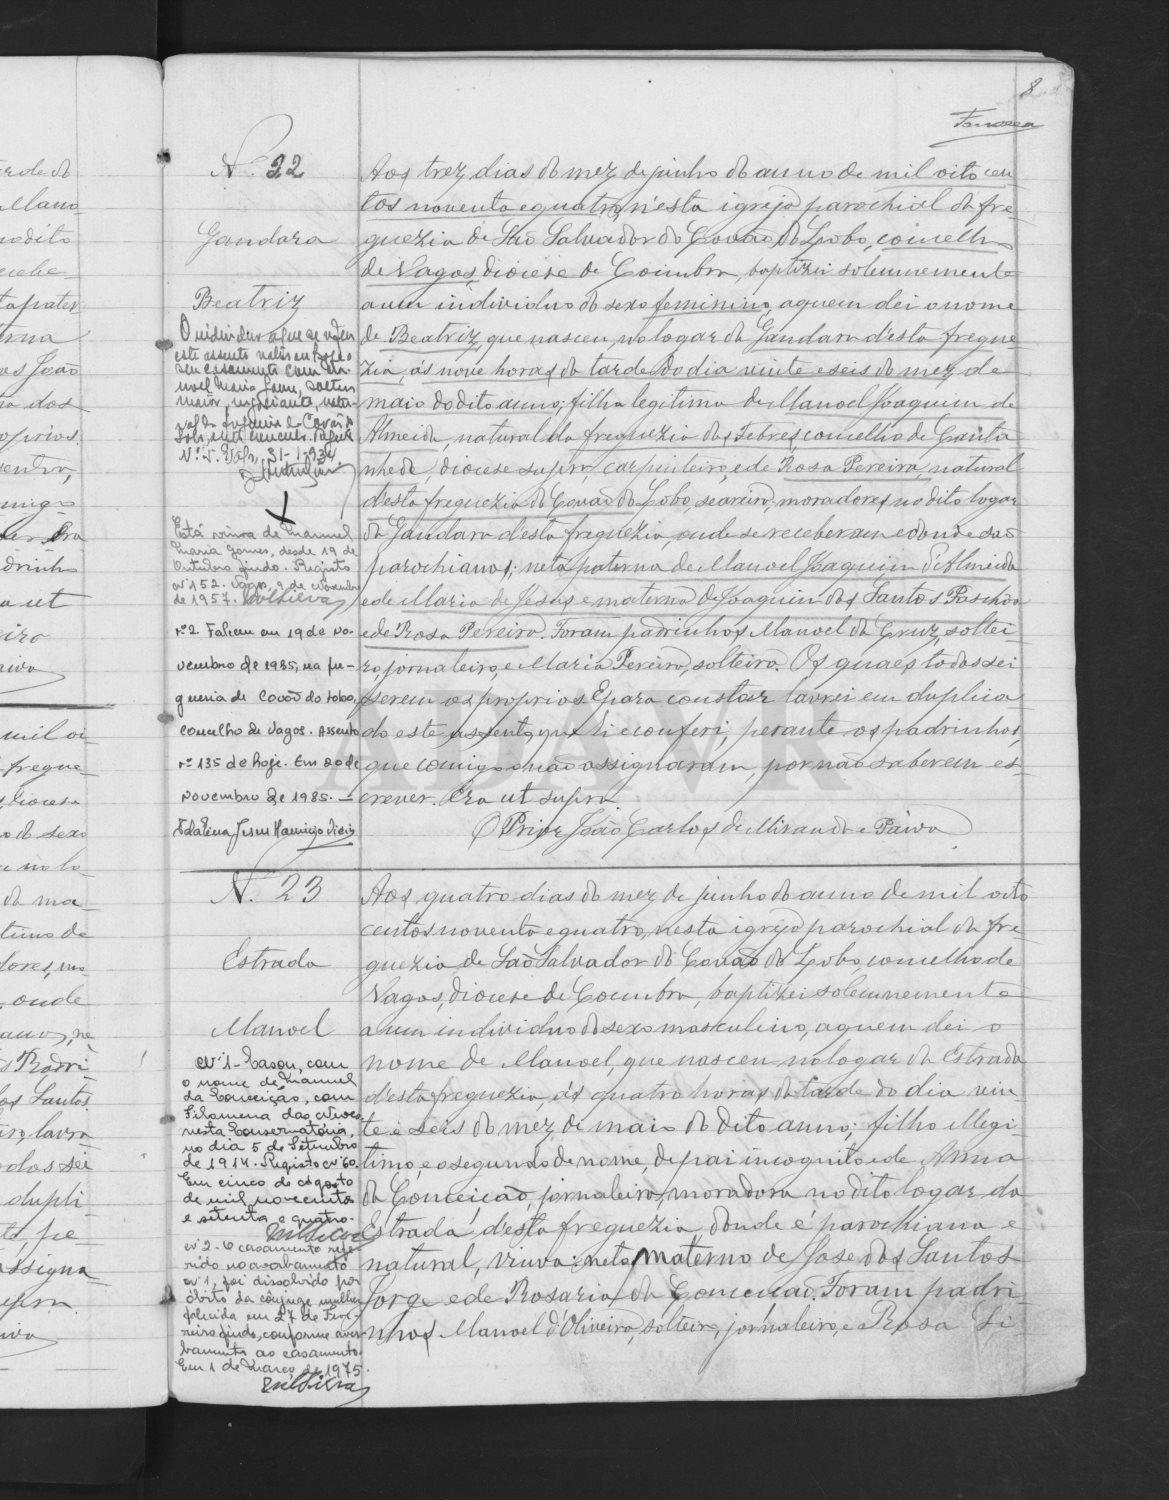 8
Fonseca
N.º 22
Gandara
Beatriz
O individuo a que se refere
este assento
seu casamento com Ma-
noel Maria Gomes, solteiro
maior, negociante, natu-
ral da freguesia de Covão do
Lobo, deste concelho. Registo
N.º 5. Vagos, 31-1-934
Está viuva de Manuel
Maria Gomes, desde 19 de
Outubro findo. Registo
nº 152. Vagos, 9 de Novembro
de 1957. MSilva
nº 2. Faleceu em 19 de No-
vembro de 1985, na fre-
guesia de Covão do Lobo,
concelho de Vagos. Assento
nº 135 de hoje. Em 20 de
Novembro de 1985. —
Aos trez dias do mez de junho do anno de mil oito cen
tos noventa e quatro, n'esta igreja parochial da fre-
guezia de São Salvador do Covão do Lobo, concelho
de Vagos, diocese de Coimbra, baptizei solemnemente
a um individuo do sexo feminino, a quem dei o nome
de Beatriz, que nasceu no logar da Gandara d'esta fregue-
zia, ás nove horas da tarde do dia vinte e seis do mez de
maio do dito anno; filha legitima de Manoel Joaquim de
Almeida, natural da freguezia das Febres, concelho de Canta
nhede, diocese supra, carpinteiro, e de Rosa Pereira, natural
d'esta freguezia do Covão do Lobo, seareira, moradores no dito logar
da Gandara d'esta freguezia, onde se receberam e donde são
parochianos; neta paterna de Manoel Joaquim d'Almeida
e de Maria de Jesus, e materna de Joaquim dos Santos Paschôa
e de Rosa Pereira. Foram padrinhos Manoel da Cruz, soltei
ro, jornaleiro, e Maria Pereira, solteira. Os quaes todos sei
serem os proprios. E para constar lavrei em duplica
do este assento, que li e conferi, perante os padrinhos,
que comigo o não assignaram, por não saberem es-
crever. Era ut supra.
O Prior João Carlos de Miranda e Paiva
N. 23
Estrada
Manoel
Nº 1 - Casou, com
o nome de Manuel
da Conceição, com
Filomena das Neves
nesta Conservatória,
no dia 5 de Setembro
de 1914. Registo nº 60.
Em cinco de Agosto
de mil novecentos
e setenta e quatro.
MSilva
Nº 2 - O casamento refe-
rido no averbamento
nº 1, foi dissolvido por
óbito da cônjuge mulher
falecida em 27 de Feve-
reiro findo, conforme aver-
bamento ao casamento.
Em 1 de Março de 1975.
MSilva
Aos quatro dias do mez de junho do anno de mil oito
centos noventa e quatro, nesta igreja parochial da fre-
guezia de São Salvador do Covão do Lobo, concelho de
Vagos, diocese de Coimbra, baptizei solemnemente
a um individuo do sexo masculino, a quem dei o
nome de Manoel, que nasceu no logar da Estrada
d'esta freguezia, ás quatro horas da tarde do dia vin
te e seis do mez de maio do dito anno; filho illegi-
timo, e o segundo de nome, de pai incognito e de Anna
da Conceição, jornaleira, moradora no dito logar da
Estrada d'esta freguezia, donde é parochiana e
natural, viuva: neto materno de José dos Santos
Jorge e de Rosaria da Conceicão. Foram padri-
nhos Manoel d'Oliveira, solteiro, jornaleiro, e Rosa Si